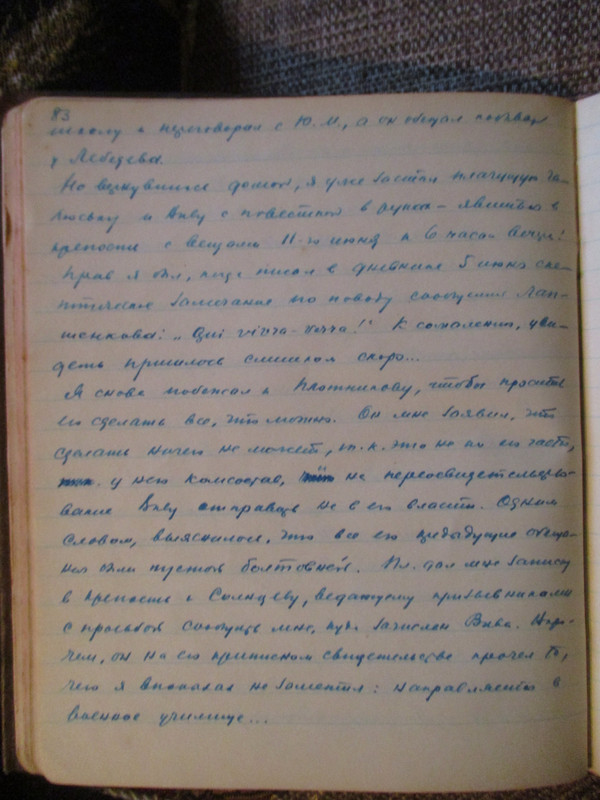 83
школу и переговорил с Ю.М., а он обещал побывать
у Лебедева.
Но вернувшись домой, я уже застал плачущую Га-
люську и Виву с повесткой в руках – явиться в
крепость с вещами 11-го июня к 6 часам вечера!
Прав я был, когда писал в дневнике 5 июня ске-
птическое замечание по поводу сообщения Лап-
шенкова: „Qui vivra – verra!" К сожалению, уви-
деть пришлось слишком скоро...
Я снова побежал к Плотникову, чтобы просить
его сделать все, что можно. Он мне заявил, что
сделать ничего не может, т.к. это не по его части,
у него комсостав, на переосвидетельство-
вание Виву отправить не в его власти. Одним
словом, выяснилось, что все его предыдущие обеща-
ния были пустой болтовней. Пл. дал мне записку
в крепость к Солнцеву, ведающему призывниками
с просьбой сообщить мне, куда зачислен Вива. Впро-
чем, он на его приписном свидетельстве прочел то,
чего я впопыхах не заметил: направляется в
военное училище...